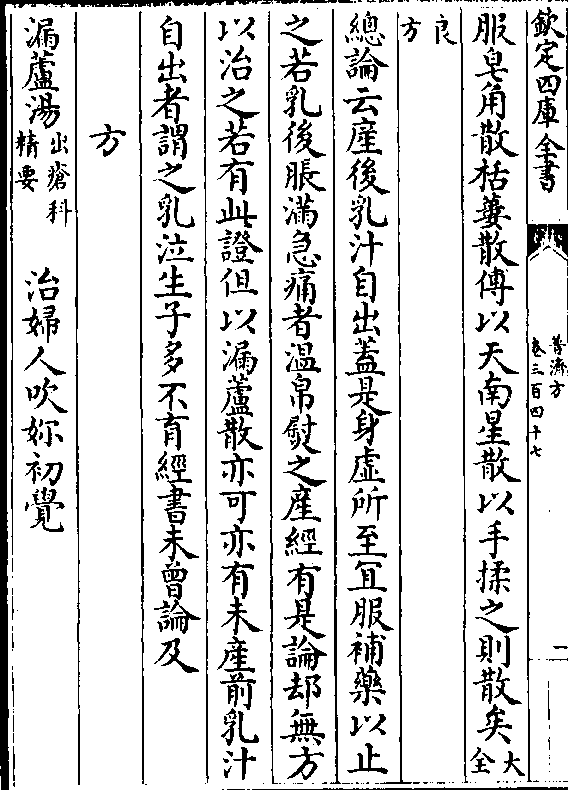 欽定四庫全書
普濟方
卷三百四十七
二
服皂角散栝蔞散傅以天南星散以手揉之則散矣大全
良方
總論云產後乳汁自出蓋是身虛所至宜服補藥以止
之若乳後脹滿急痛者溫帛熨之產經有是論却無方
以治之若有此證但以漏蘆散亦可亦有未產前乳汁
自出者謂之乳泣生子多不育經書未曾論及
方
漏蘆湯出瘡科精要 治婦人吹妳初覺